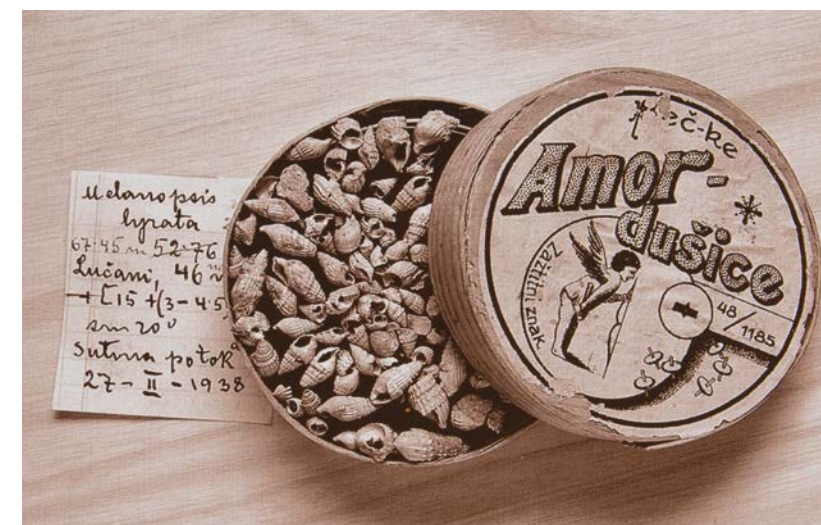 Melanopsis
lyrata
67·45 m 52·76
Lučani, 46 m
+ [15 + (3 – 4·5
sm 20°
Sutina potok
27 – II – 1938
eč-ke
Amor-
dušice
Zaštitni znak
48/1185